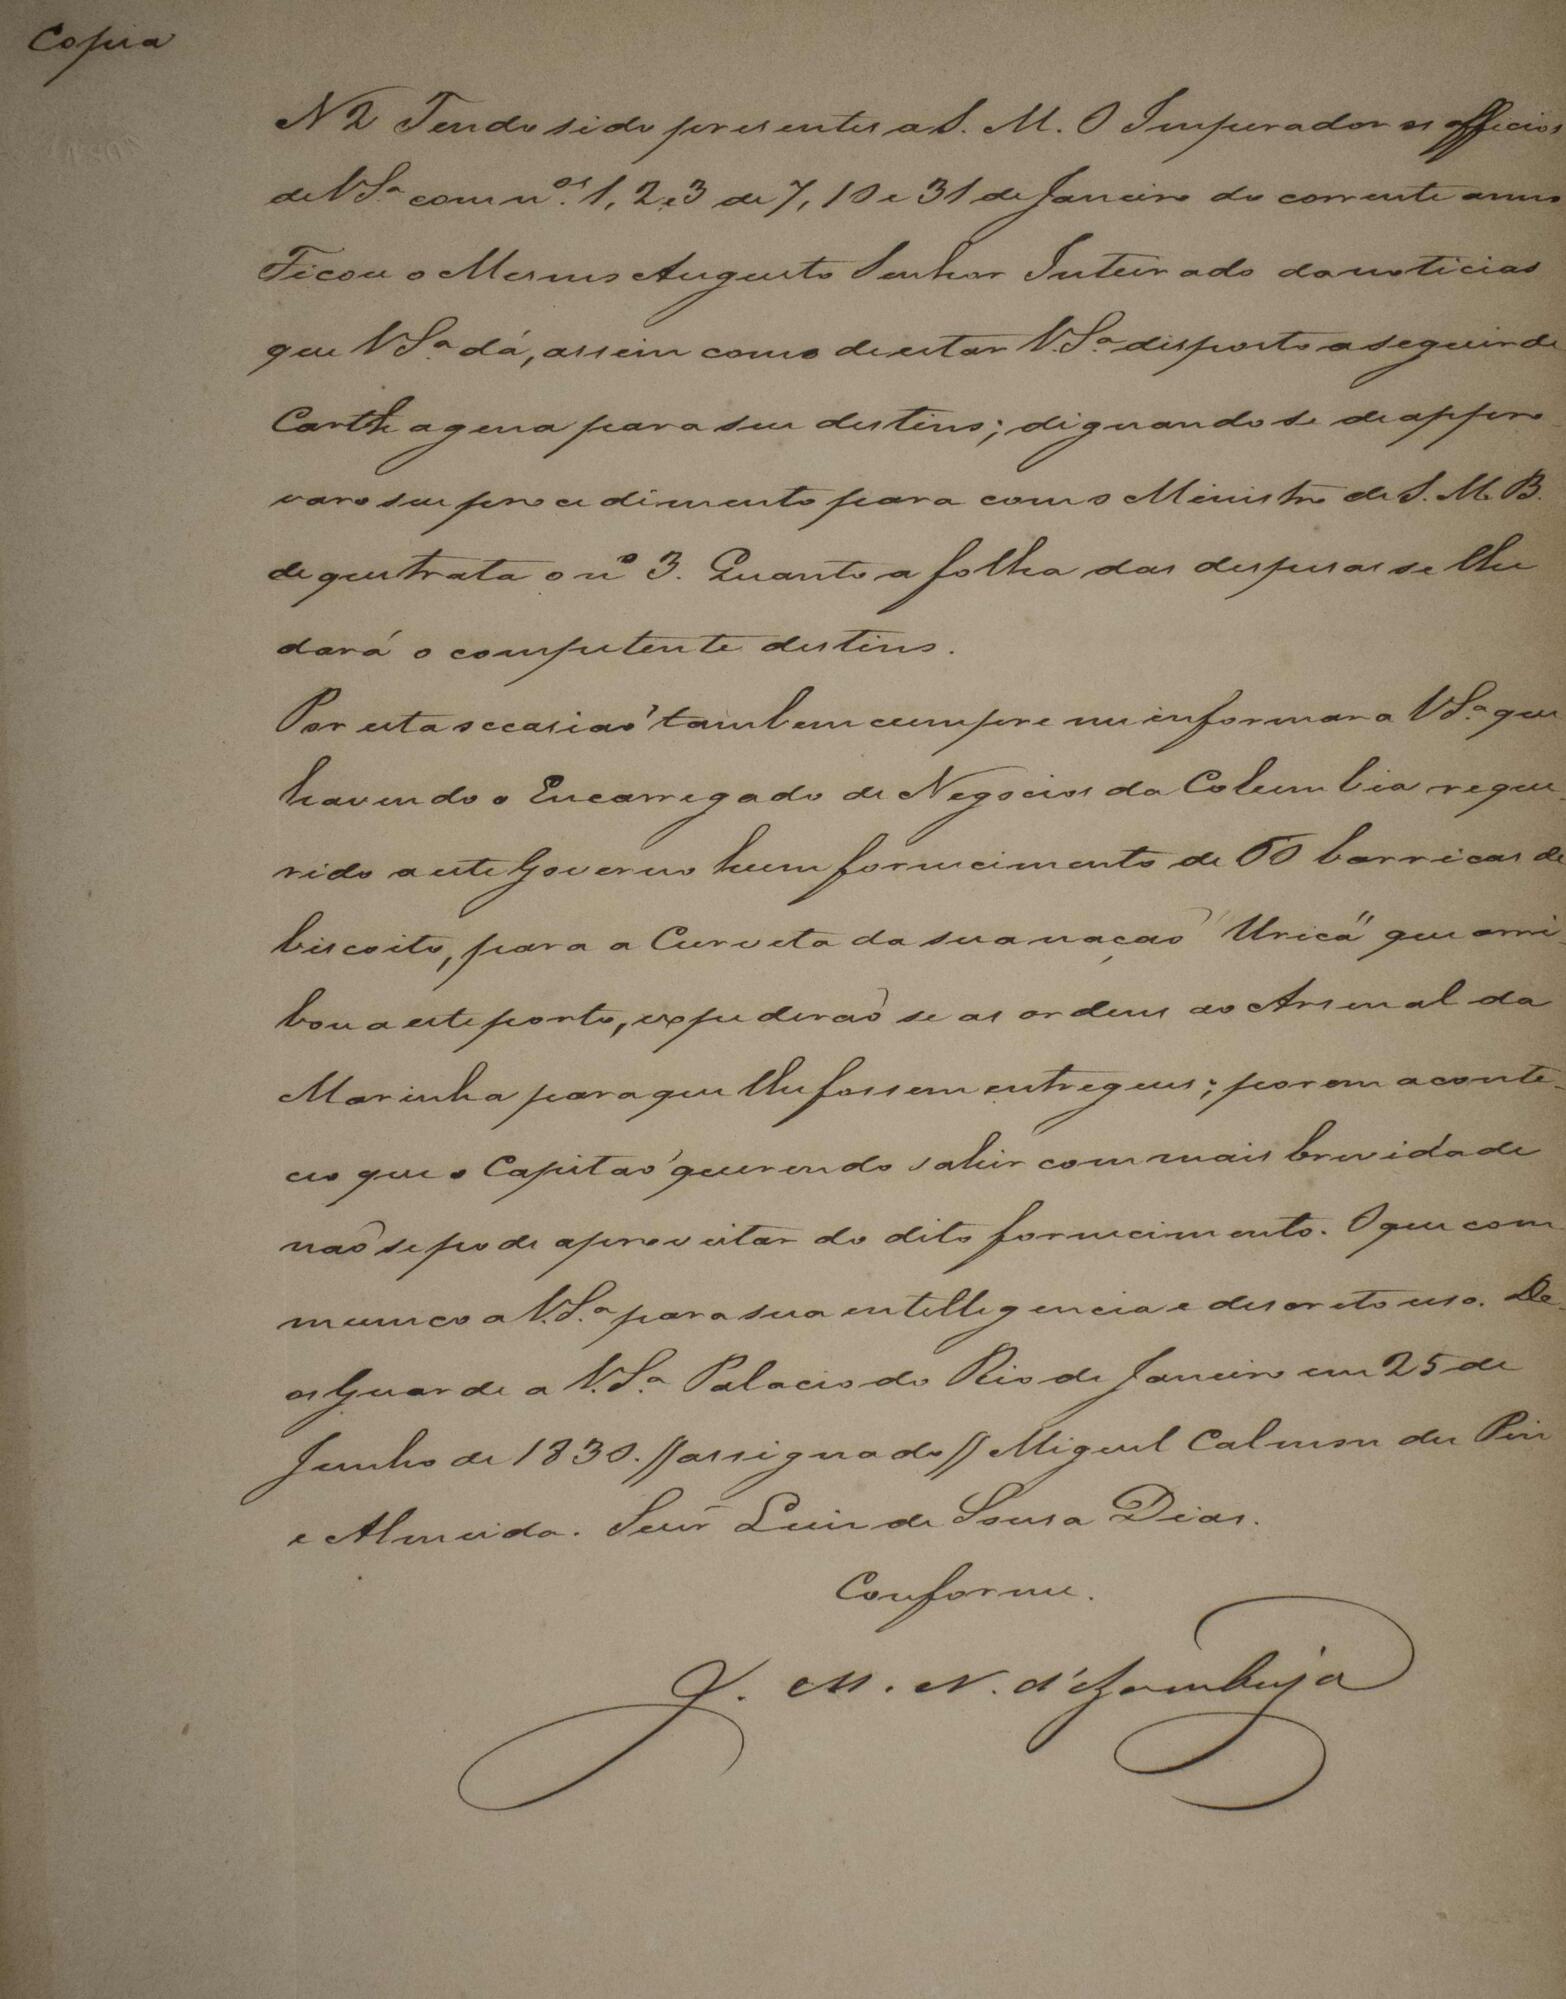 Copia
N 2 Tendo sido presentes a S. M. O Imperador os officios
de V Sª com n.ºˢ 1, 2 e 3 de 7, 10 e 31 de Janeiro do corrente anno
Ficou o Mesmo Augusto Senhor Inteirado da noticias
que V Sª dá, assim como de estar V. Sª disposto a seguir de
Carthagena para seu destino; dignando se de appro
var o seu procedimento para com o Ministro de S. M. B.
de que trata o nº 3. Quanto a folha das despesas se lhe
dará o competente destino.
Por esta occasiaõ tambem cumpre me informar a V Sª que
havendo o Encarregado de Negocios da Columbia reque
rido a este Governo hum fornecimento de 60 barricas de
biscoito, para a Curveta da sua naçaõ "Uricá" que arri
bou a este porto, expediraõ se as ordens ao Arsenal da
Marinha para que lhe fossem entregues; porem aconte-
ceo que o Capitaõ querendo sahir com mais brevidade
naõ se pode aproveitar do dito fornecimento. O que com
munico a V. Sª para sua intelligencia e discreto uso. De
os Guarde a V. Sª Palacio do Rio de Janeiro em 25 de
Junho de 1830. // assignado // Miguel Calmon du Pin
e Almeida. Senr Luiz de Sousa Dias.
Conforme.
J. M. N. d'Azambuja